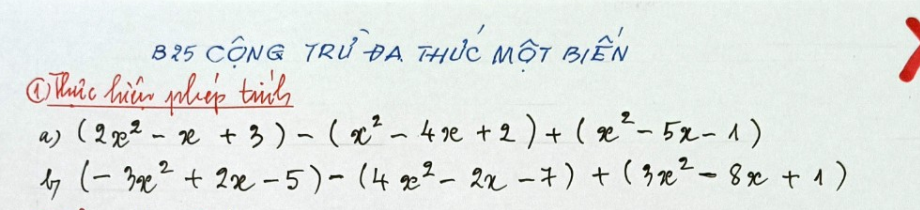 B25 CỘNG TRỪ ĐA THỨC MỘT BIẾN
① Thực hiện phép tính
a) (2x² - x + 3) - (x² - 4x + 2) + (x² - 5x - 1)
b) (- 3x² + 2x - 5) - (4x² - 2x - 7) + (3x² - 8x + 1)